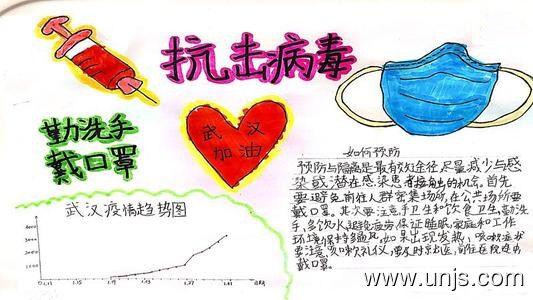 抗击病毒
勤洗手
戴口罩
武汉
加油
如何预防
预防与隔离是最有效途径尽量减少与感
染或潜在感染患者接触的机会。首先
要避免前往人群密集场所,在公共场所要
戴口罩。其次要注意手卫生和饮食卫生,勤洗
手,多饮水,避免疲劳,保证睡眠,家庭和工作
环境保持多通风,如果出现发热,咳嗽症状
要注意咳嗽礼仪,
戴口罩。
武汉疫情趋势图
www.unjs.com